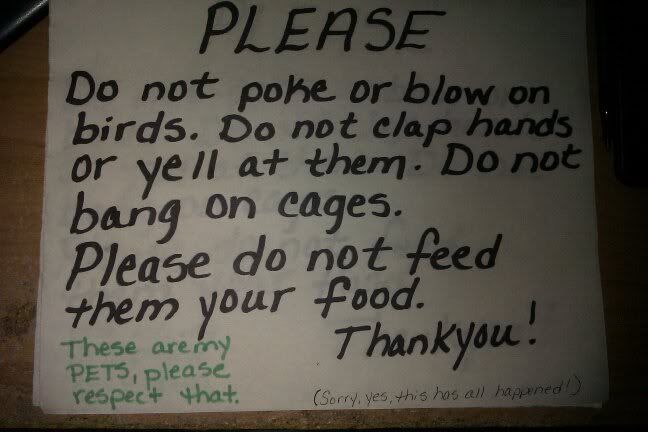 PLEASE
Do not poke or blow on
birds. Do not clap hands
or yell at them. Do not
bang on cages.
Please do not feed
them your food.
Thankyou!
These are my
PETS, please
respect that.
(Sorry, yes, this has all happened!)